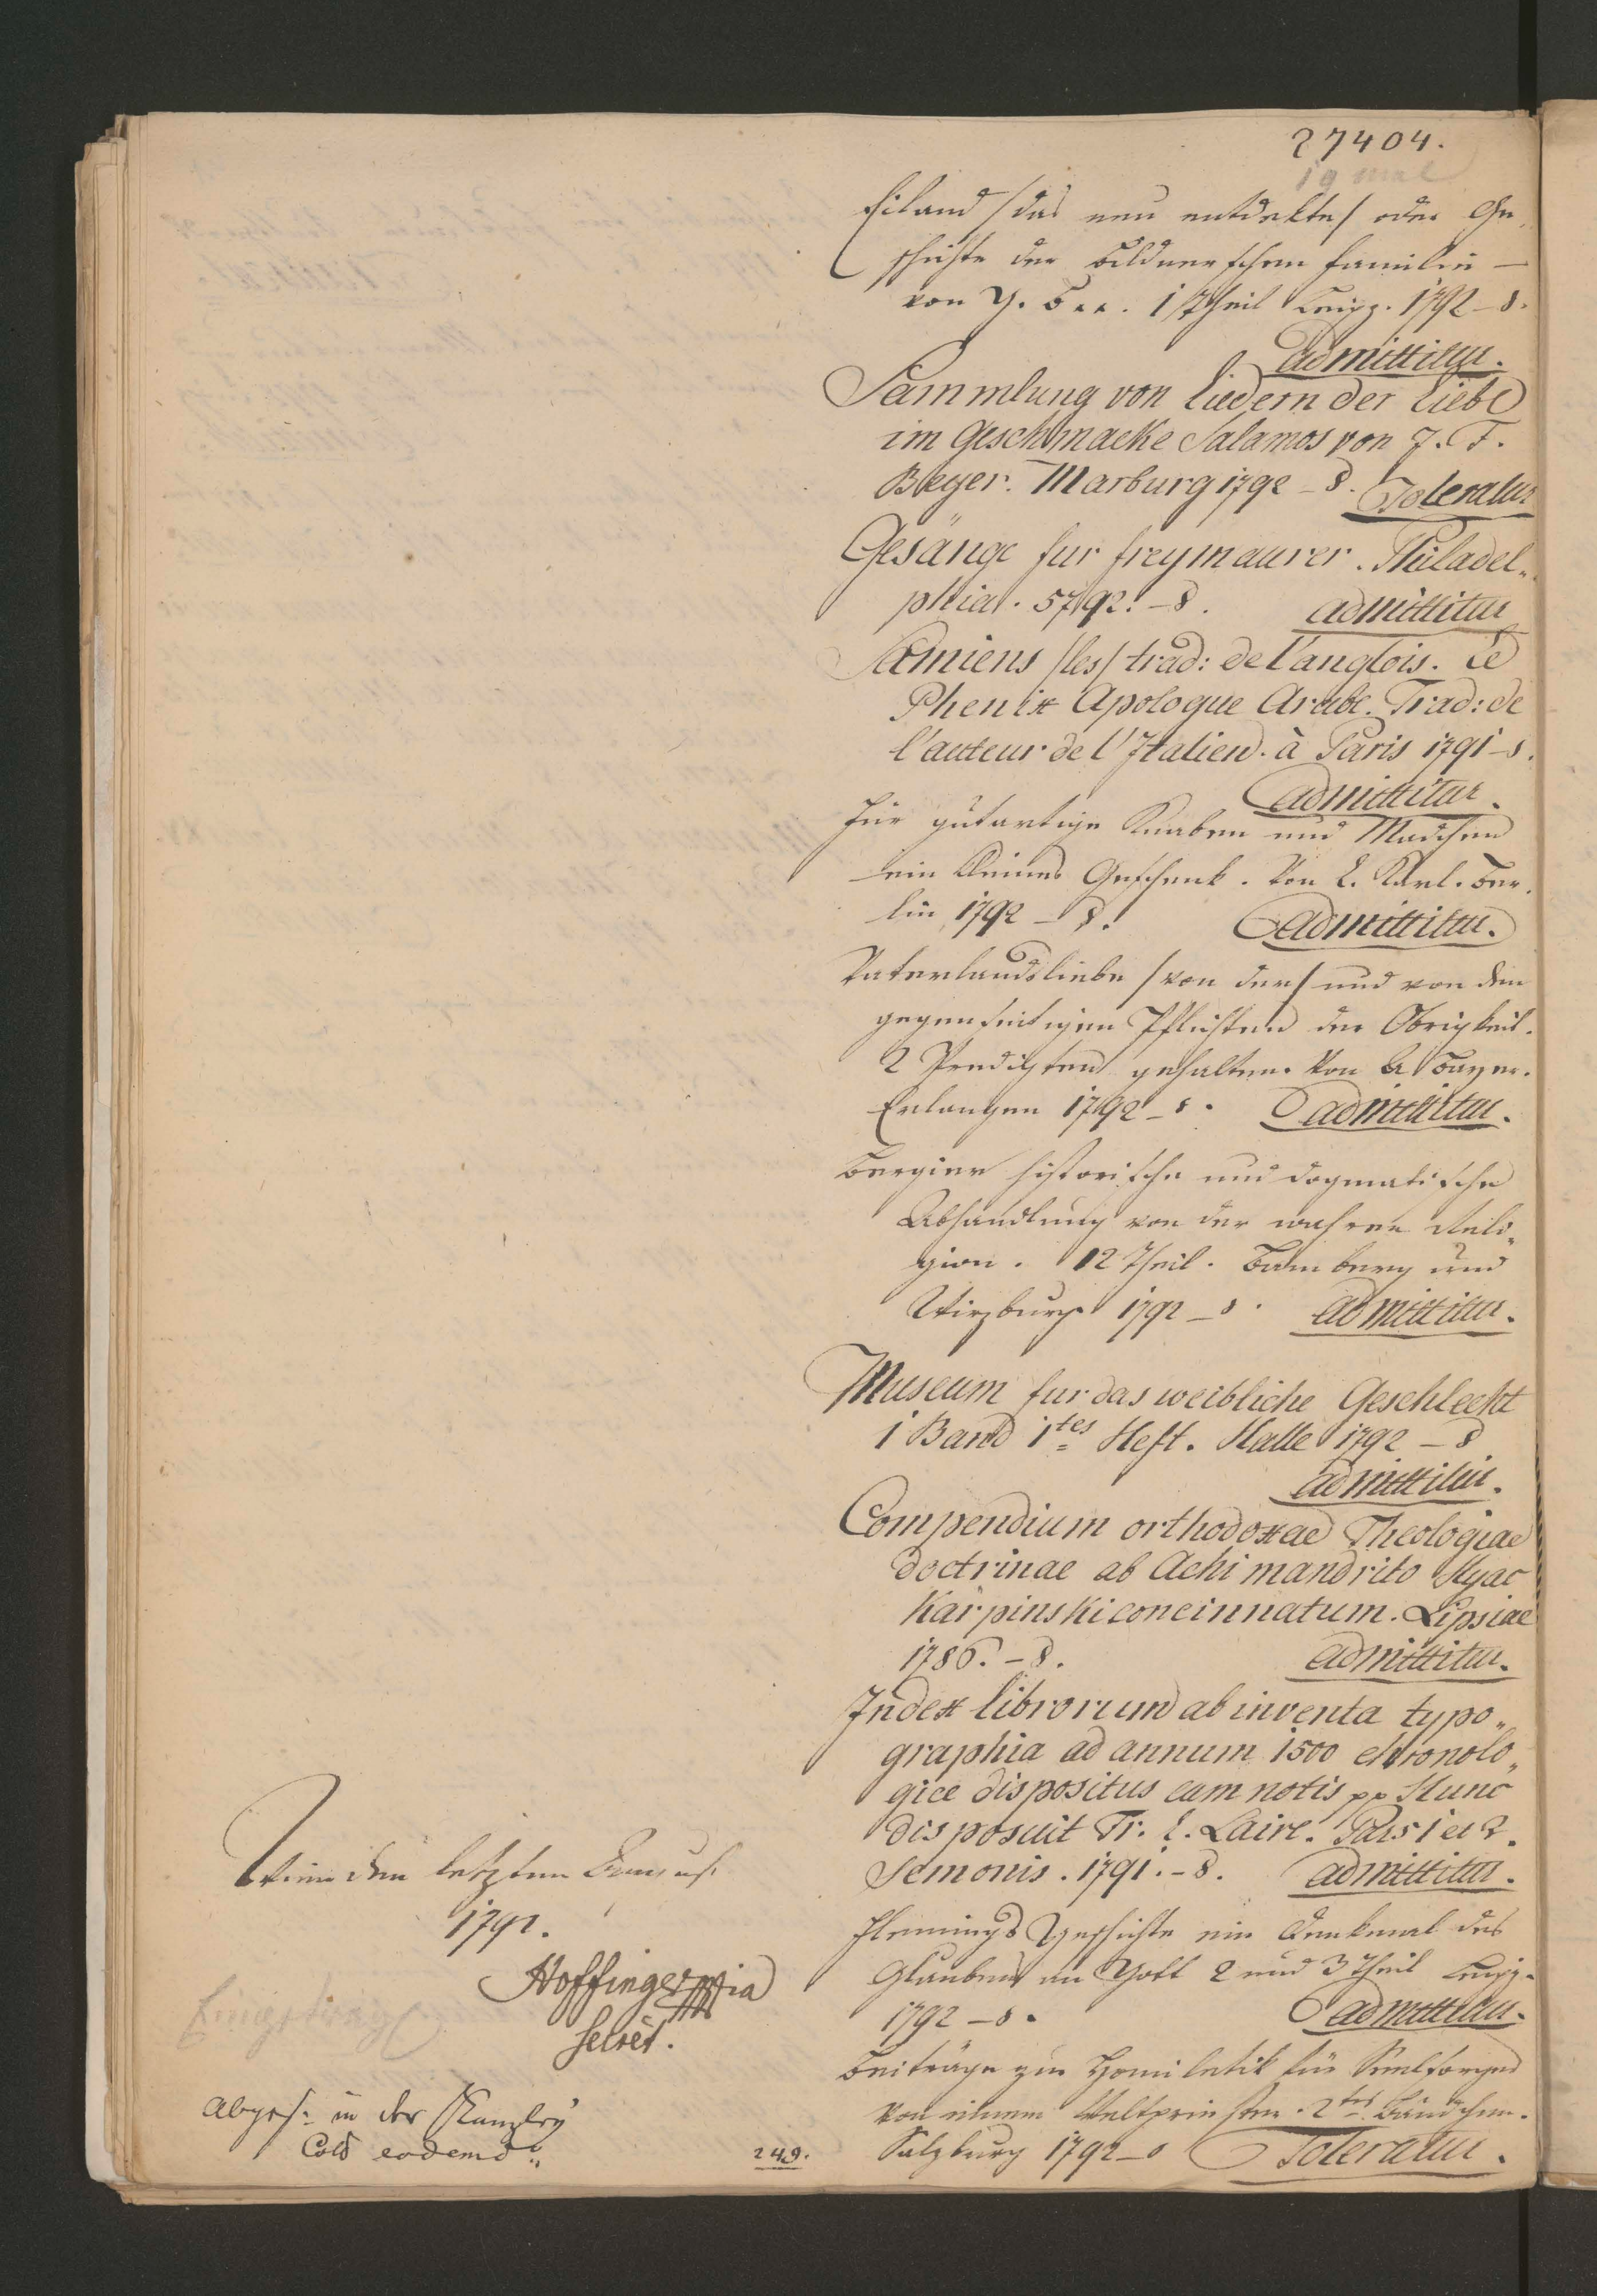 27404.
Eiland /das neu entdekte/ oder Ge„
schichte der Bildnerschen Familie —
von J. B... 1 Theil Leipz. 1792 – 8.
admittitur.
Sammlung von Liedern der Liebe
im Geschmacke Salamos von J. F.
Beyer. Marburg 1792 – 8. Toleratur
Gesänge fur freymaurer. Philadel„
phia. 5792. – 8. admittitur
Samiens /les/ trad: de l'anglois. Le
Phenix Apologue Arabe. Trad: de
l'auteur de l'Italien. à Paris 1791 – 8.
admittitur.
Für gutartige Knaben und Mädchen
ein kleines Geschenk. Von L. Karl. Ber„
lin 1792 – 8. admittitur.
Vaterlandsliebe /von der/ und von den
gegenseitigen Pflichten der Obrigkeit.
2 Predigten gehalten von Bayer.
Erlangen 1792 – 8. admittitur.
Bergier historische und dogmatische
Abhandlung von der wahren Reli„
gion. 12 Theil. Bamberg und
Wirzburg 1792 – 8. admittitur.
Museum fur das weibliche Geschlecht
1 Band 1tes Heft. Halle 1792 – 8
admittitur.
Compendium orthodoxae Theologiae
doctrinae ab Achimandrito Hyac
Karpinski concinnatum. Lipsiae
1786. – 8. admittitur.
Index librorum ab inventa typo„
graphia ad annum 1500 chronolo„
gice dispositus cum notis pp Hunc
disposuit Fr. L. Laire. Pars 1 et 2.
Semonis. 1791. – 8. admittitur.
Flemings Geschichte ein Denkmal des
Glaubens an Gott 2 und 3 Theil Leipz.
1792 – 8. admittitur.
Beiträge zur Homiletik für Seelsorger
von einem Weltpriester. 2tes Bändchen.
Salzburg 1792 – 8 Toleratur.
Wien den letzten
1792.
Hoffinger mpia
Secret.
Abgesch: in der Kanzley
eodem
249.